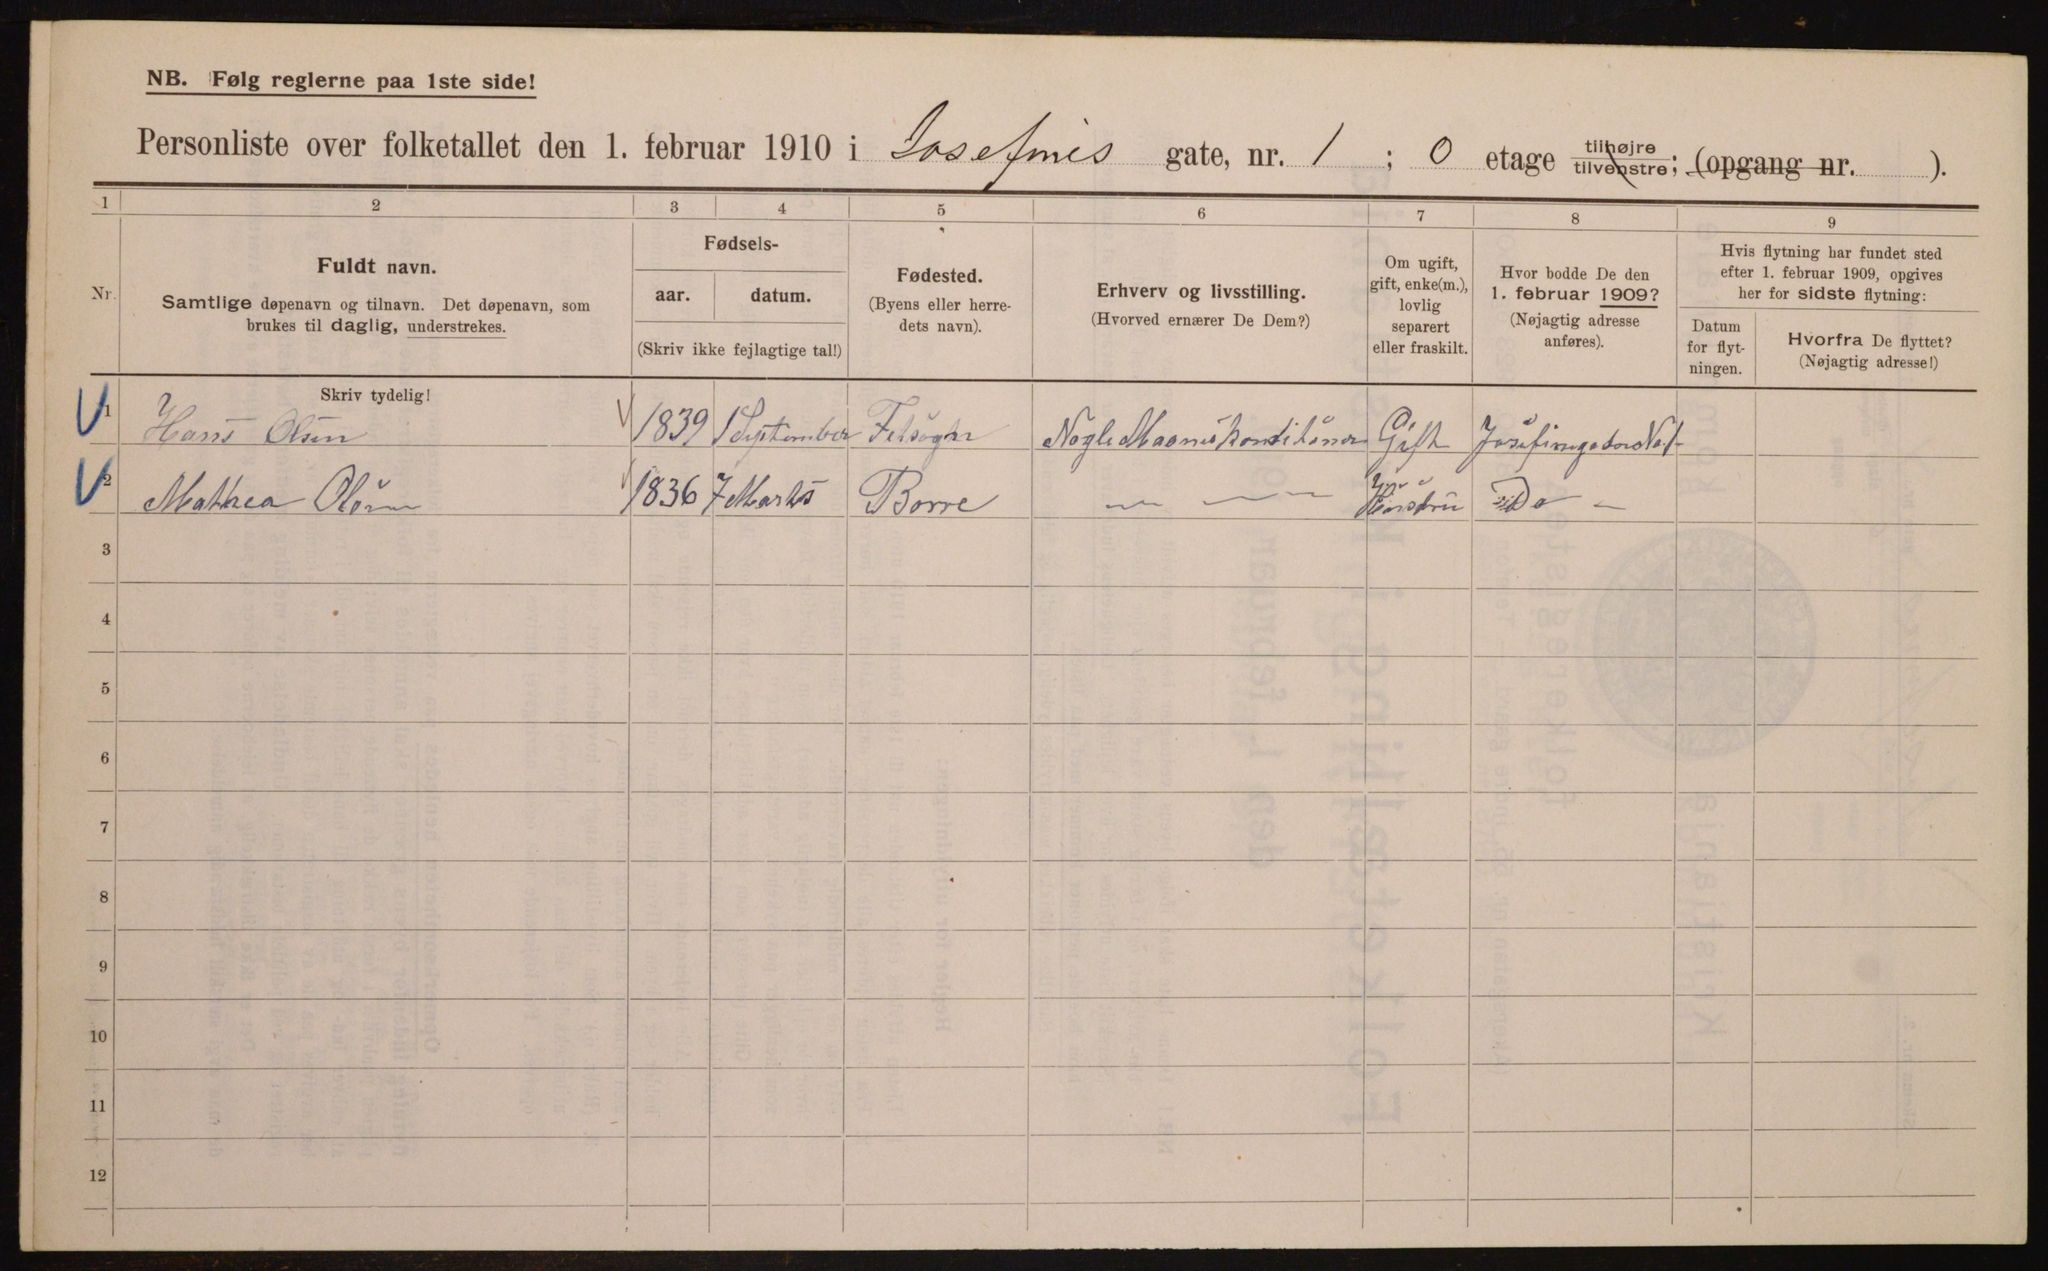 NB. Følg reglerne paa 1ste side!
Personliste over folketallet den 1. februar 1910 i Josefines gate, nr. 1 ; 0 etage tilhøjre tilvenstre; (opgang nr. ).
1 2 3 4 5 6 7 8 9
Nr.
Fuldt navn.
Samtlige døpenavn og tilnavn. Det døpenavn, som
brukes til daglig, understrekes.
Skriv tydelig!
Fødsels-
aar. datum.
(Skriv ikke fejlagtige tal!)
Fødested.
(Byens eller herre-
dets navn).
Erhverv og livsstilling.
(Hvorved ernærer De Dem?)
Om ugift,
gift, enke(m.),
lovlig
separert
eller fraskilt.
Hvor bodde De den
1. februar 1909?
(Nøjagtig adresse
anføres).
Hvis flytning har fundet sted
efter 1. februar 1909, opgives
her for sidste flytning:
Datum
for flyt-
ningen.
Hvorfra De flyttet?
(Nøjagtig adresse!)
1 Hans Olsen 1839 1 September Gift
2 Mathea Olsen 1836 7 Marts Borre Hustru Do –
3
4
5
6
7
8
9
10
11
12